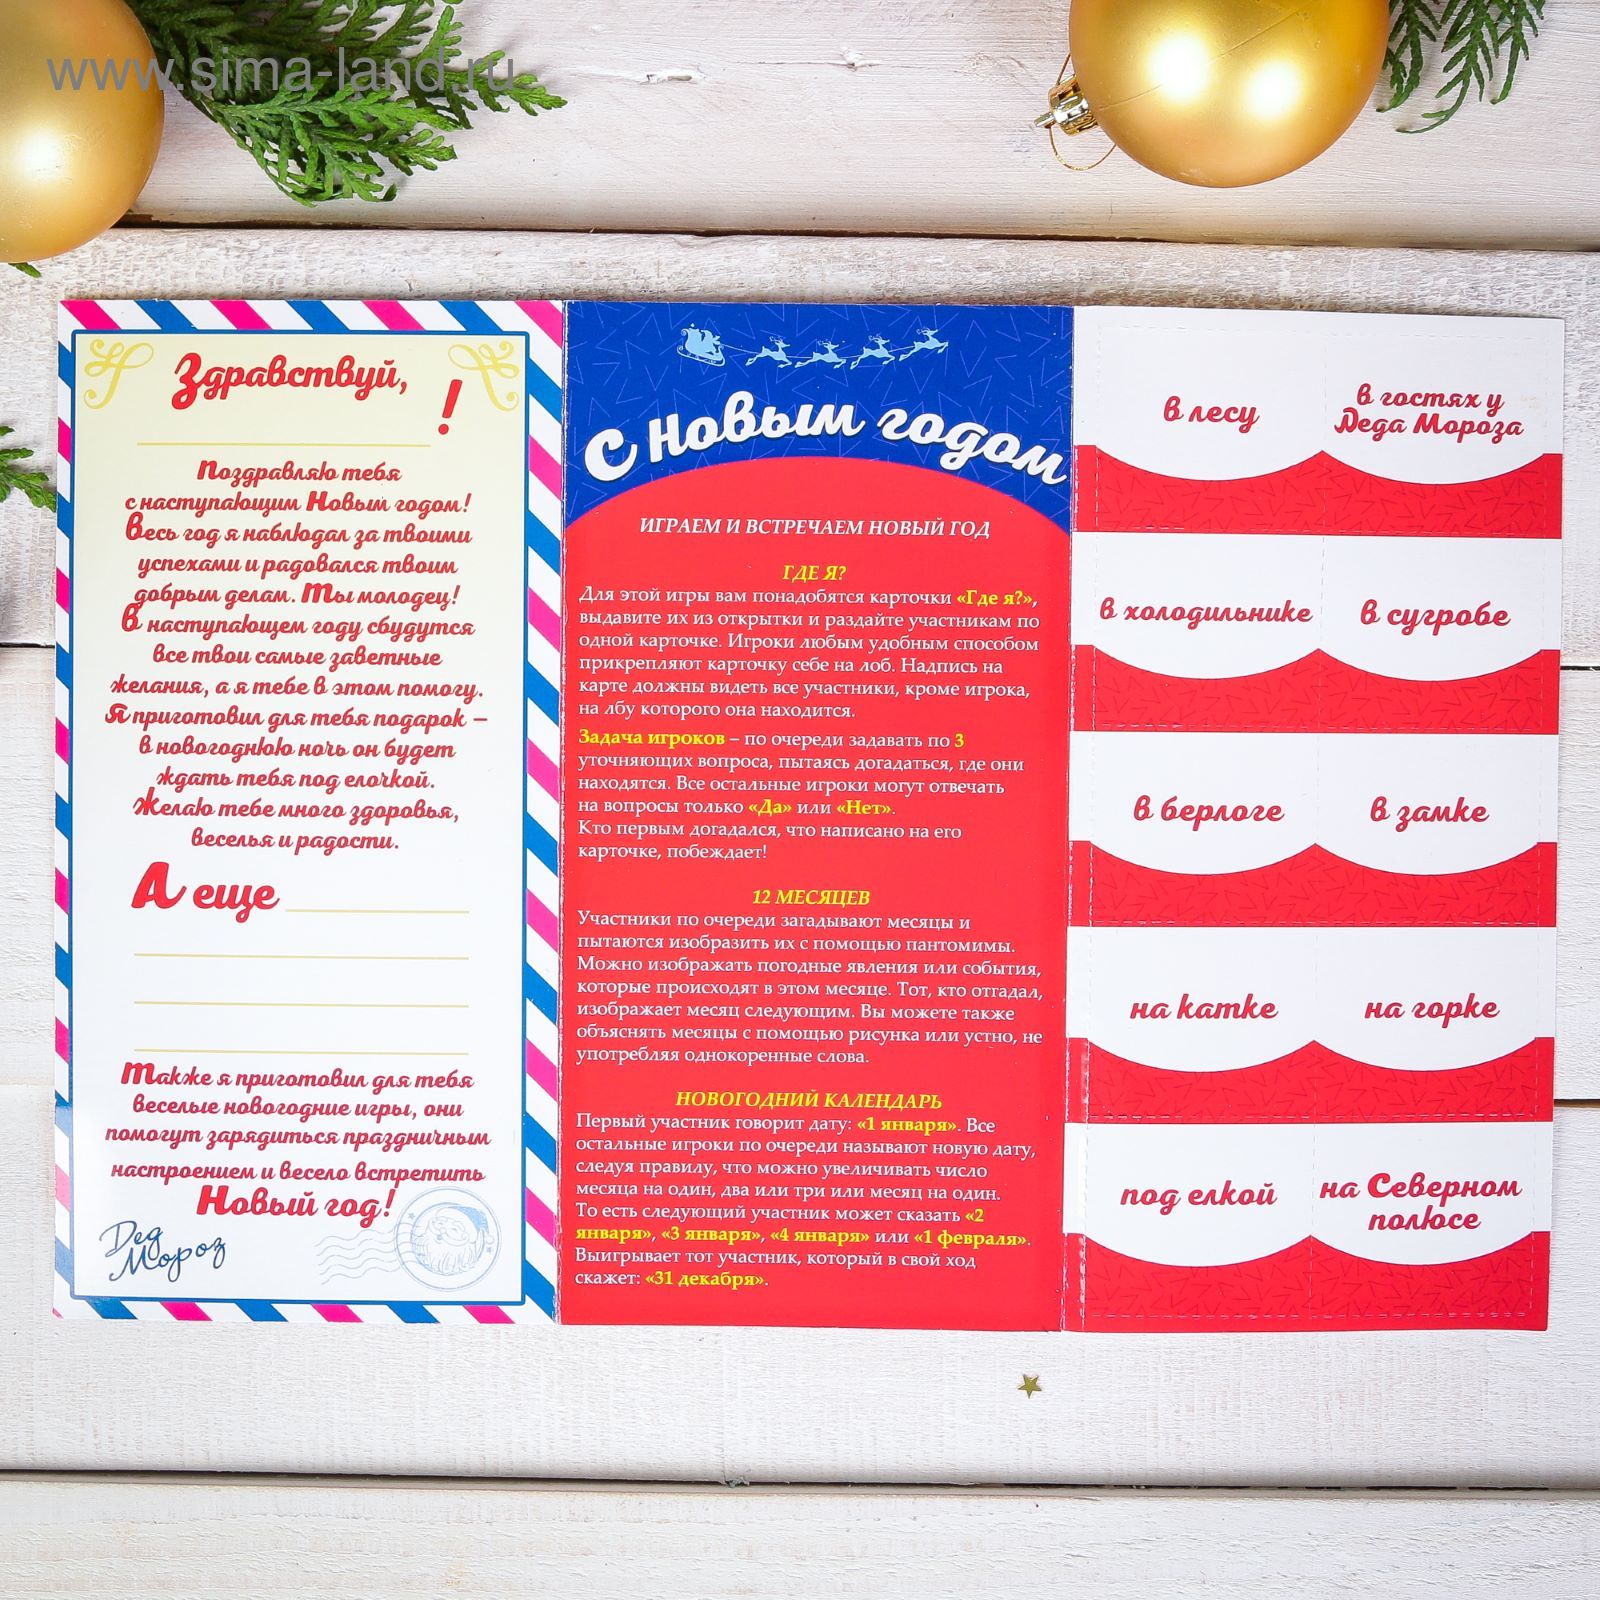 www.sima-land.ru
Здравствуй,
!
Поздравляю тебя
с наступающим Новым годом!
Весь год я наблюдал за твоими
успехами и радовался твоим
добрым делам. Ты молодец!
В наступающем году сбудутся
все твои самые заветные
желания, а я тебе в этом помогу.
Я приготовил для тебя подарок –
в новогоднюю ночь он будет
ждать тебя под елочкой.
Желаю тебе много здоровья,
веселья и радости.
А еще
Также я приготовил для тебя
веселые новогодние игры, они
помогут зарядиться праздничным
настроением и весело встретить
Новый год!
Дед
Мороз
С Новым годом
ИГРАЕМ И ВСТРЕЧАЕМ НОВЫЙ ГОД
ГДЕ Я?
Для этой игры вам понадобятся карточки «Где я?»,
выдавите их из открытки и раздайте участникам по
одной карточке. Игроки любым удобным способом
прикрепляют карточку себе на лоб. Надпись на
карте должны видеть все участники, кроме игрока,
на лбу которого она находится.
Задача игроков – по очереди задавать по 3
уточняющих вопроса, пытаясь догадаться, где они
находятся. Все остальные игроки могут отвечать
на вопросы только «Да» или «Нет».
Кто первым догадался, что написано на его
карточке, побеждает!
12 МЕСЯЦЕВ
Участники по очереди загадывают месяцы и
пытаются изобразить их с помощью пантомимы.
Можно изображать погодные явления или события,
которые происходят в этом месяце. Тот, кто отгадал,
изображает месяц следующим. Вы можете также
объяснять месяцы с помощью рисунка или устно, не
употребляя однокоренные слова.
НОВОГОДНИЙ КАЛЕНДАРЬ
Первый участник говорит дату: «1 января». Все
остальные игроки по очереди называют новую дату,
следуя правилу, что можно увеличивать число
месяца на один, два или три или месяц на один.
То есть следующий участник может сказать «2
января», «3 января», «4 января» или «1 февраля».
Выигрывает тот участник, который в свой ход
скажет: «31 декабря».
в лесу
в гостях у
Деда Мороза
в холодильнике
в сугробе
в берлоге
в замке
на катке
на горке
под елкой
на Северном
полюсе